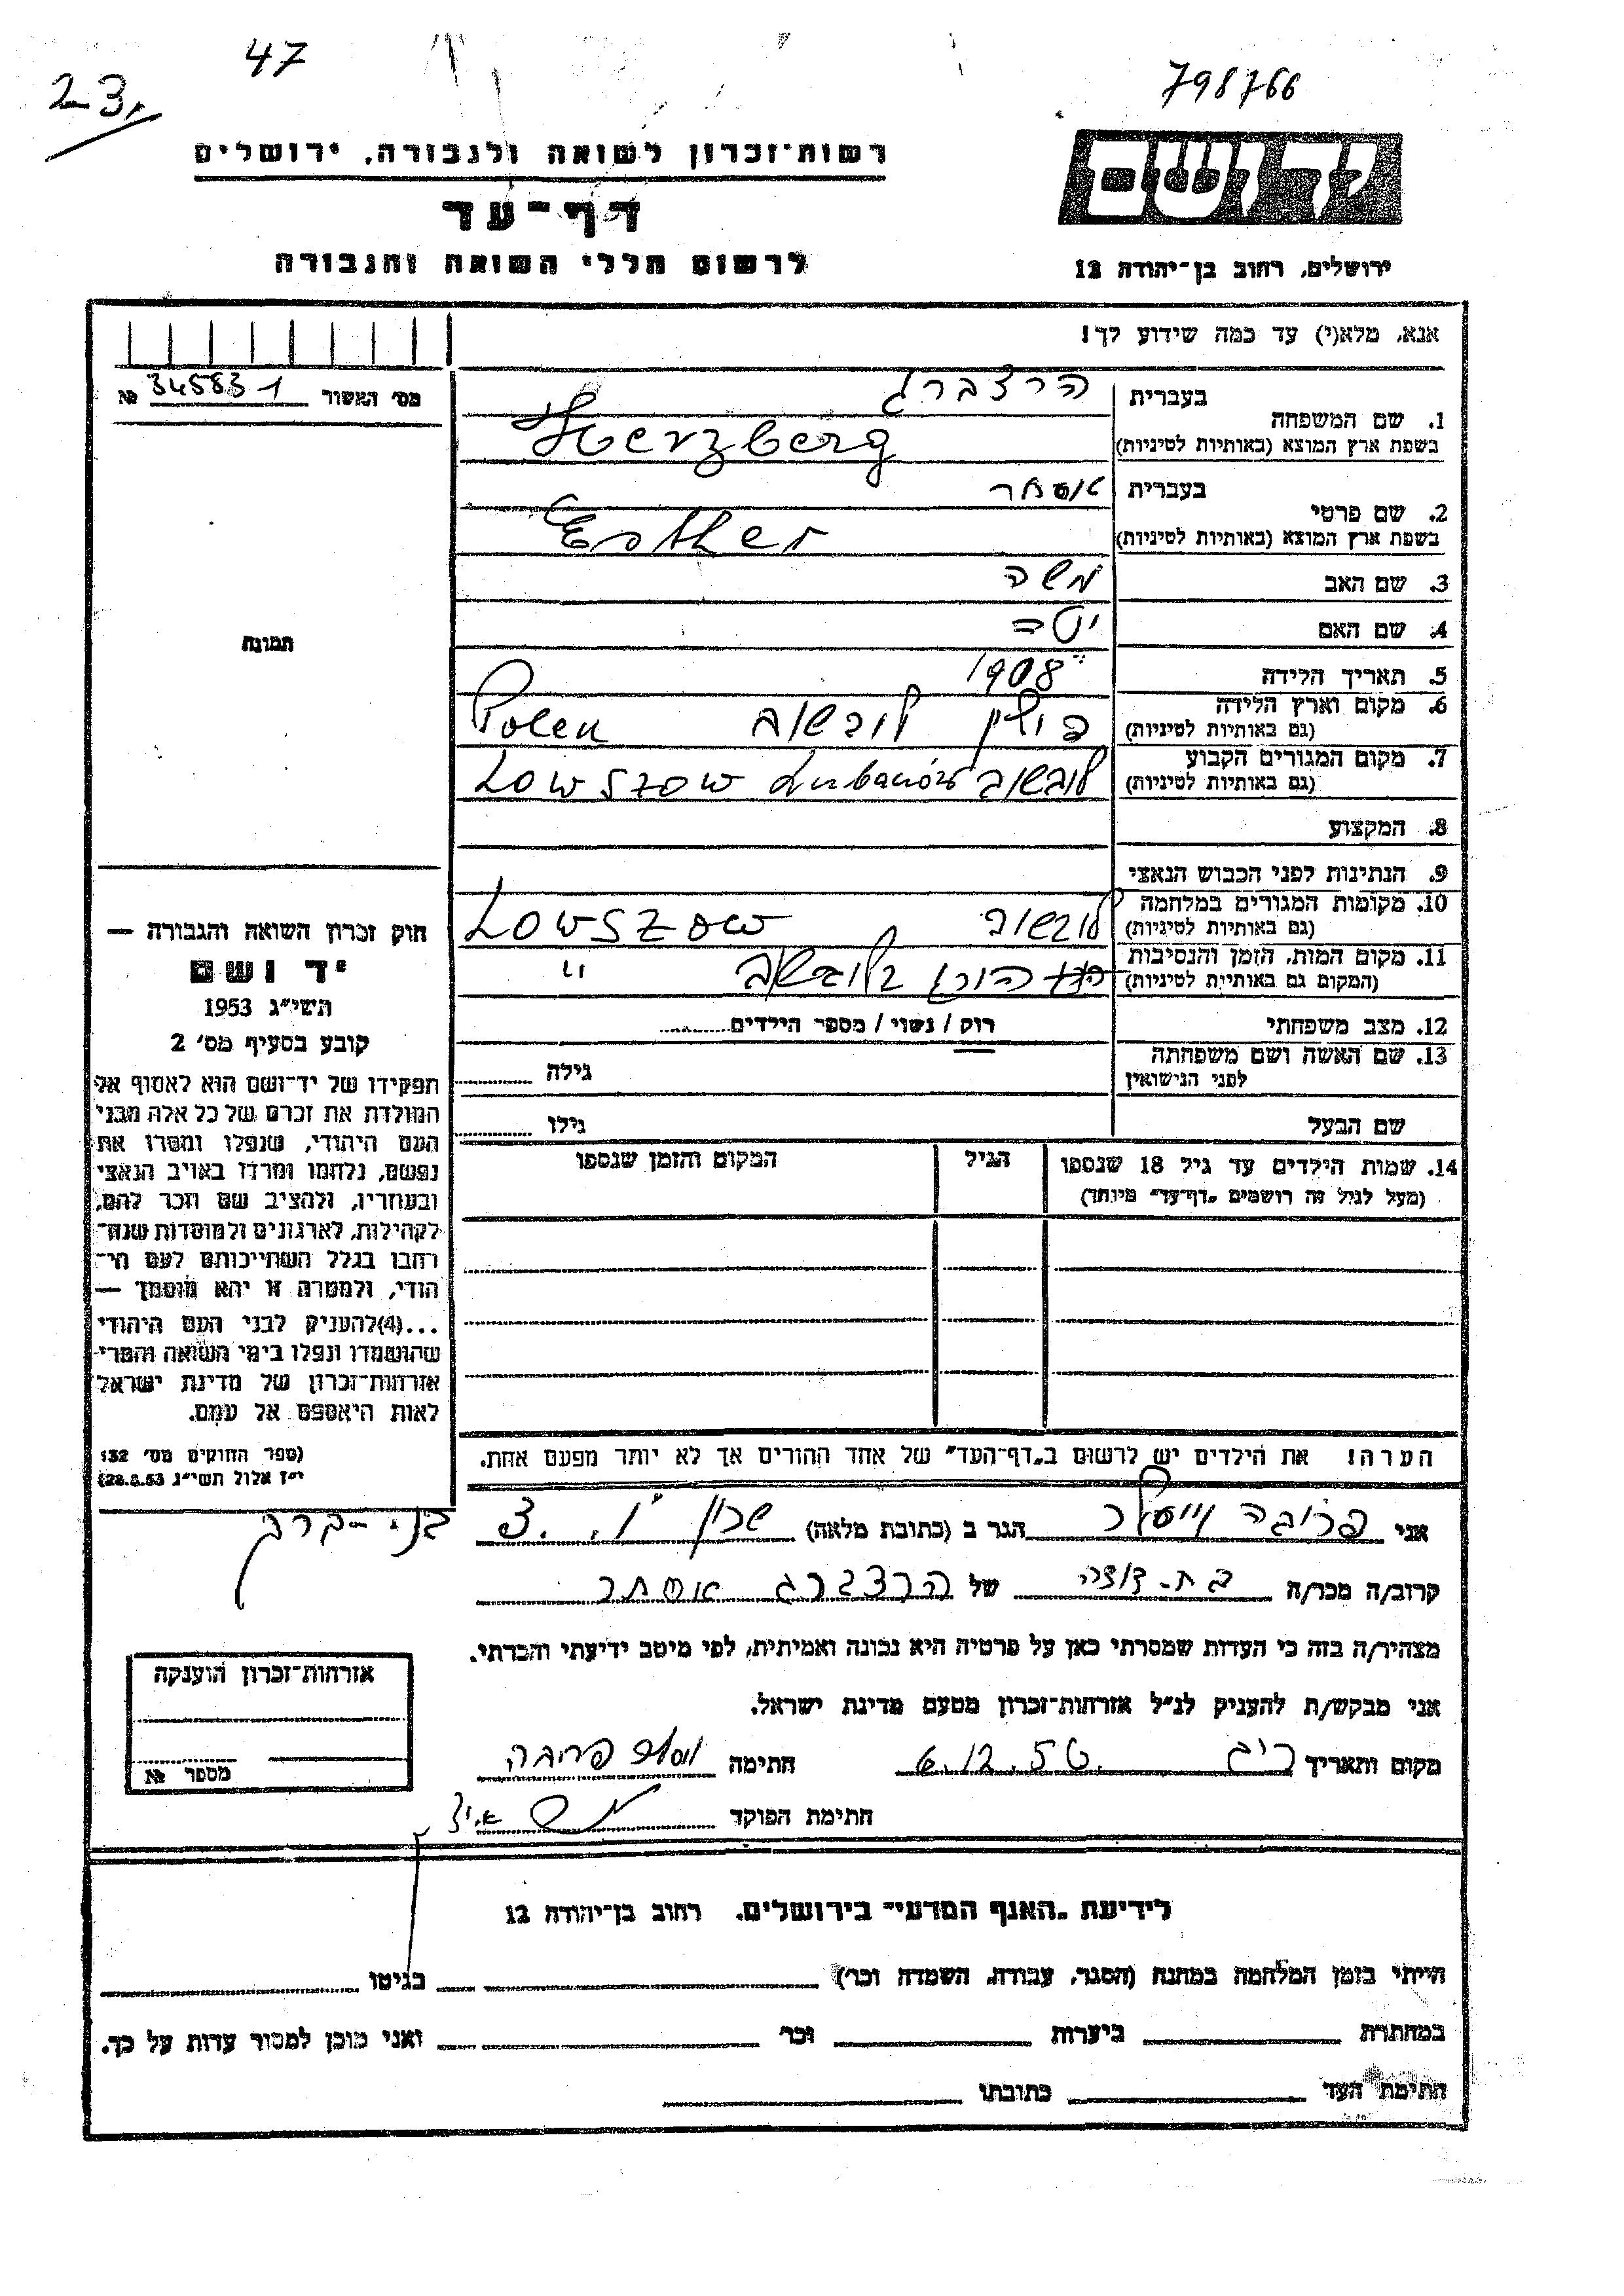 47
23,
798766
רשות־זכרון לשואה ולגבורה, ירושלים
דף־עד
לרשום חללי השואה והגבורה
יד ושם
ירושלים, רחוב בן־יהודה 12
אנא, מלא(י) עד כמה שידוע לך!
מס׳ האשור 345831 №
תמונה
1. שם המשפחה
בעברית הרצברג
בשפת ארץ המוצא (באותיות לטיניות) Herzberg
2. שם פרטי
בעברית אסתר
בשפת ארץ המוצא (באותיות לטיניות) Esther
3. שם האב משה
4. שם האם יטה
5. תאריך הלידה 1908
6. מקום וארץ הלידה (גם באותיות לטיניות) פולין לובשוב Polen
7. מקום המגורים הקבוע (גם באותיות לטיניות) לובשוב Lowszow
8. המקצוע
9. הנתינות לפני הכבוש הנאצי
10. מקומות המגורים במלחמה (גם באותיות לטיניות) לובשוב Lowszow
11. מקום המות, הזמן והנסיבות (המקום גם באותיות לטיניות) בלובשוב "
12. מצב משפחתי רוק / נשוי / מספר הילדים
13. שם האשה ושם משפחתה לפני הנישואין גילה
שם הבעל גילו
14. שמות הילדים עד גיל 18 שנספו
(מעל לגיל זה רושמים „דף־עד” מיוחד)
הגיל
המקום והזמן שנספו
הערה! את הילדים יש לרשום ב„דף־העד” של אחד ההורים אך לא יותר מפעם אחת.
חוק זכרון השואה והגבורה —
יד ושם
תשי״ג 1953
קובע בסעיף מס׳ 2
תפקידו של יד־ושם הוא לאסוף אל
המולדת את זכרם של כל אלה מבני
העם היהודי, שנפלו ומסרו את
נפשם, נלחמו ומרדו באויב הנאצי
ובעוזריו, ולהציב שם וזכר להם,
לקהילות, לארגונים ולמוסדות שנח־
רבו בגלל השתייכותם לעם הי־
הודי, ולמטרה זו יהא מוסמך —
...(4)להעניק לבני העם היהודי
שהושמדו ונפלו בימי השואה והמרי
אזרחות־זכרון של מדינת ישראל
לאות היאספם אל עמם.
(ספר החוקים מס׳ 132
י״ז אלול תשי״ג 28.8.53)
אני פרובה הגר ב (כתובת מלאה) בני-ברק
קרוב/ה מכר/ה בת-דודה של הרצברג אסתר
מצהיר/ה בזה כי העדות שמסרתי כאן על פרטיה היא נכונה ואמיתית, לפי מיטב ידיעתי והכרתי.
אני מבקש/ת להעניק לנ״ל אזרחות־זכרון מטעם מדינת ישראל.
מקום ותאריך 6.12.56 חתימה
חתימת הפוקד
אזרחות־זכרון הוענקה
מספר №
לידיעת „האגף המדעי” בירושלים, רחוב בן־יהודה 12
הייתי בזמן המלחמה במחנה (הסגר, עבודה, השמדה וכר׳) בגיטו
במחתרת ביערות וכר׳ ואני מוכן למסור עדות על כך.
חתימת העד כתובתו